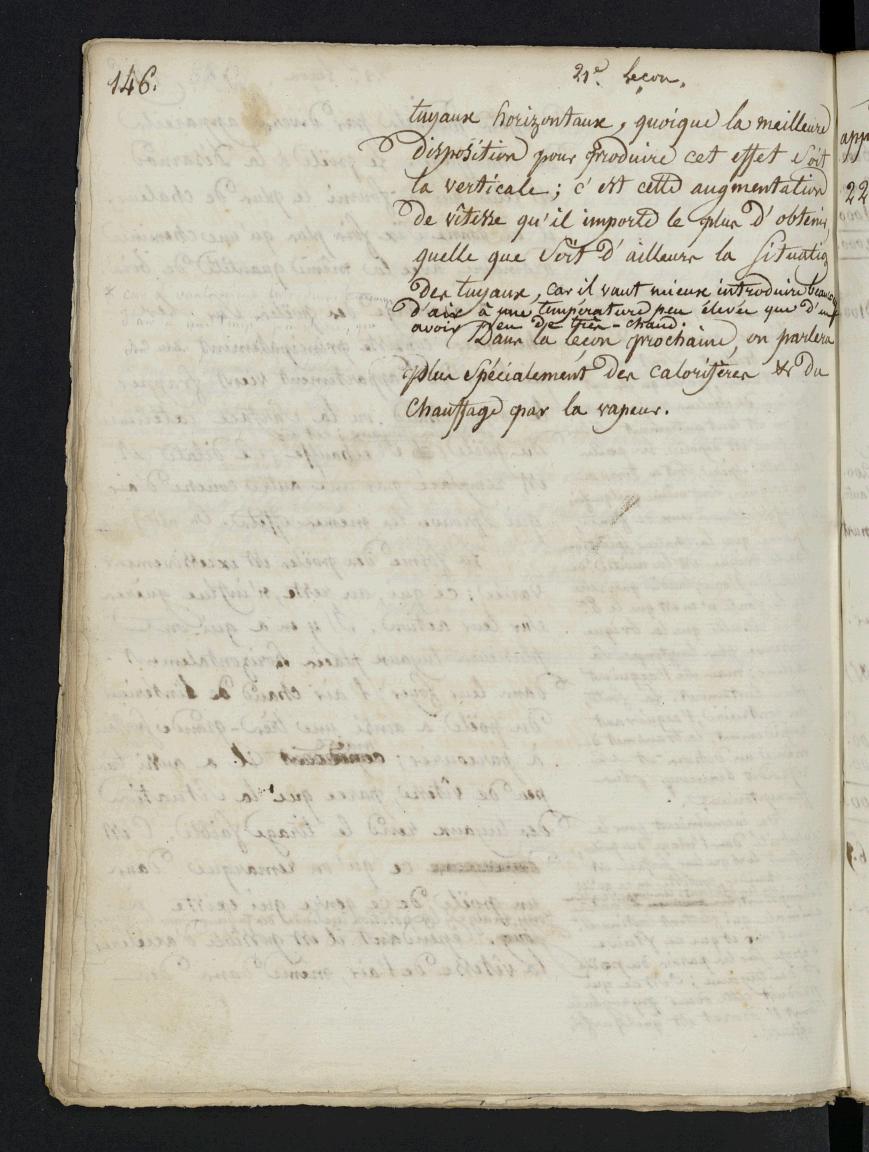 146.
21e. Leçon.
tuyaux horizontaux, quoique la meilleure
disposition pour produire cet effet soit
la verticale; c'est cette augmentation
de vîtesse qu'il importe le plus d'obtenir,
quelle que soit d'ailleurs la situation
des tuyaux, car il vaut mieux introduire beaucoup
d'air à une température peu élevée que d'en
avoir peu de très-chaud.
Dans la leçon prochaine, on parlera
plus spécialement des calorifères & du
chauffage par la vapeur.